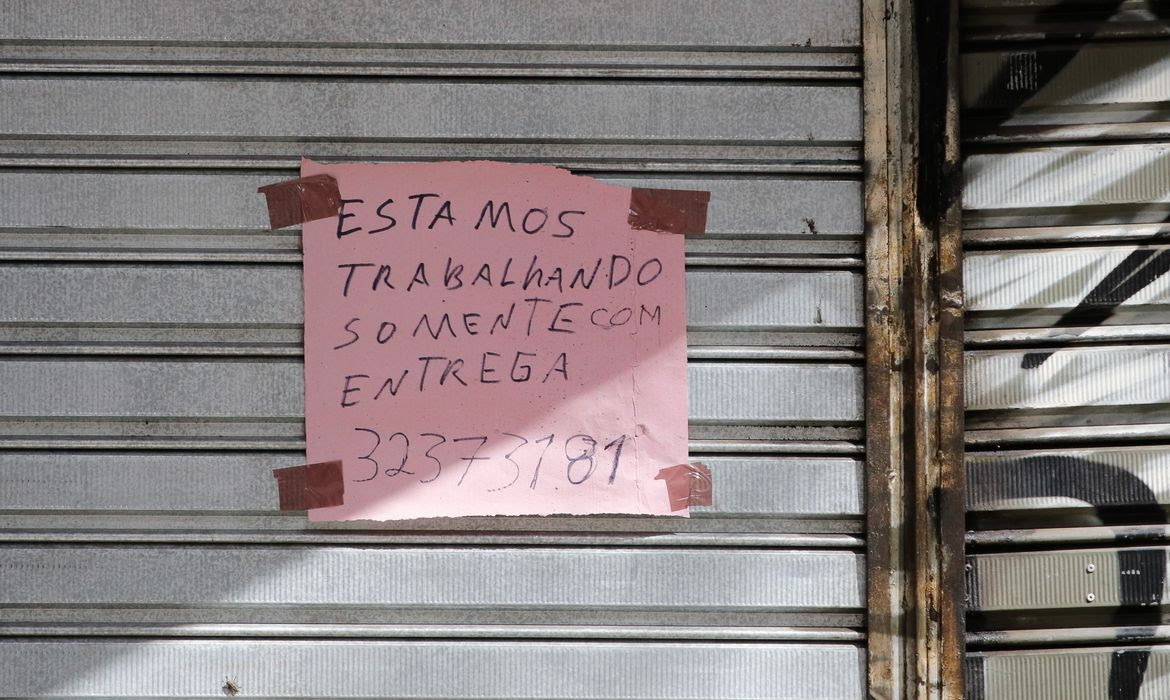 ESTAMOS
TRABALhANDO
SOMENTE COM
ENTREGA
32373181